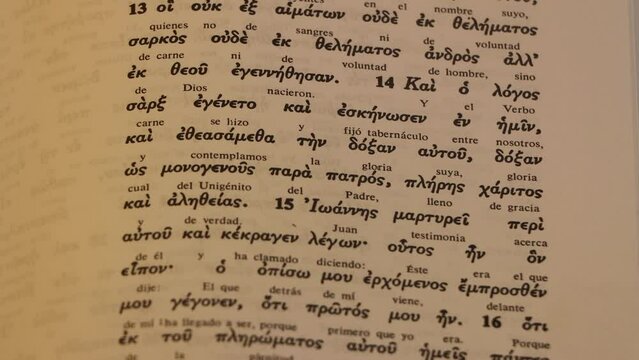 en el nombre suyo,
13 οἳ οὐκ ἐξ αἱμάτων οὐδὲ ἐκ θελήματος
quienes no de sangres ni de voluntad
σαρκὸς οὐδὲ ἐκ θελήματος ἀνδρὸς ἀλλ’
de carne ni de voluntad de hombre, sino
ἐκ θεοῦ ἐγεννήθησαν. 14 Καὶ ὁ λόγος
de Dios nacieron. Y el Verbo
σὰρξ ἐγένετο καὶ ἐσκήνωσεν ἐν ἡμῖν,
carne se hizo y fijó tabernáculo entre nosotros,
καὶ ἐθεασάμεθα τὴν δόξαν αὐτοῦ, δόξαν
y contemplamos la gloria suya, gloria
ὡς μονογενοῦς παρὰ πατρός, πλήρης χάριτος
cual del Unigénito del Padre, lleno de gracia
καὶ ἀληθείας. 15 Ἰωάννης μαρτυρεῖ περὶ
y de verdad. Juan testimonia acerca
αὐτοῦ καὶ κέκραγεν λέγων· οὗτος ἦν ὃν
de él y ha clamado diciendo: Éste era el que
εἶπον· ὁ ὀπίσω μου ἐρχόμενος ἔμπροσθέν
dije: El que detrás de mí viene, delante
μου γέγονεν, ὅτι πρῶτός μου ἦν. 16 ὅτι
de mí ha llegado a ser, porque primero que yo era. Porque
ἐκ τοῦ πληρώματος αὐτοῦ ἡμεῖς πάντες
de la